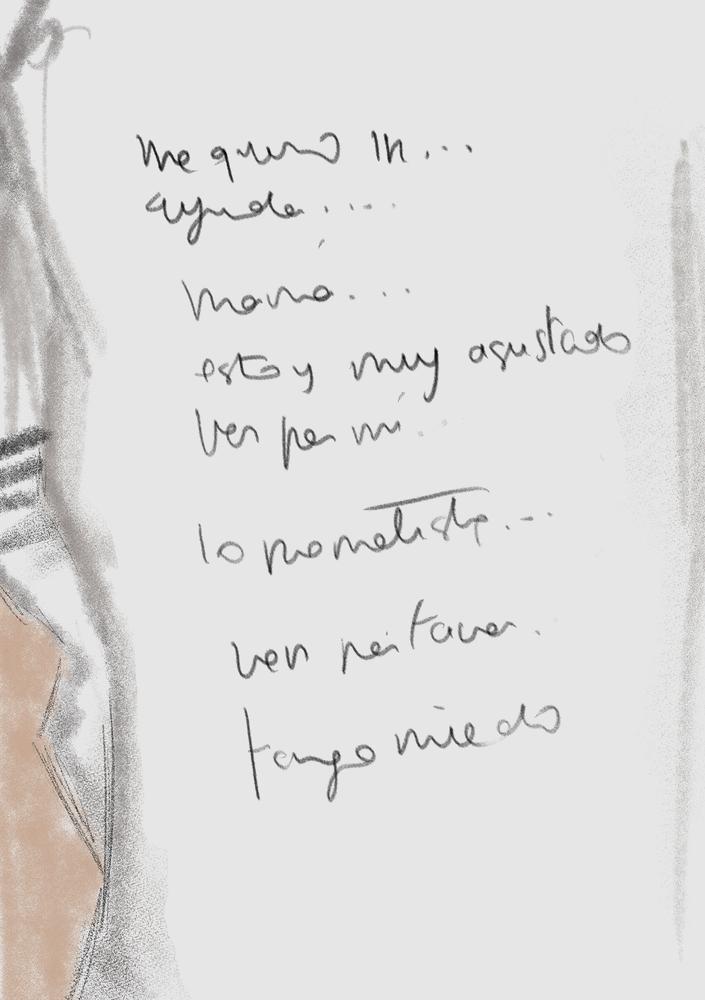 me quiero ir...
ayuda.....
mamá...
estoy muy asustado
ven por mí..
lo prometiste...
ven por favor.
tengo miedo